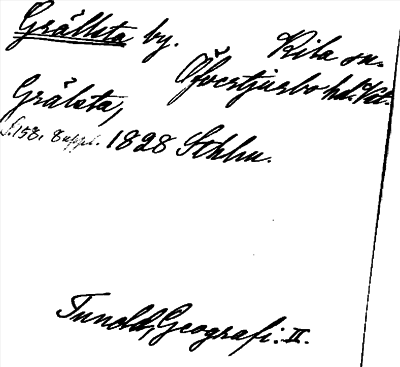 Grällsta by. Kila sn.
Öfvertjurbo hd. Vstm.
Grälsta,
S. 158. 8 uppl. 1828 Sthlm.
Tuneld, Geografi. II.